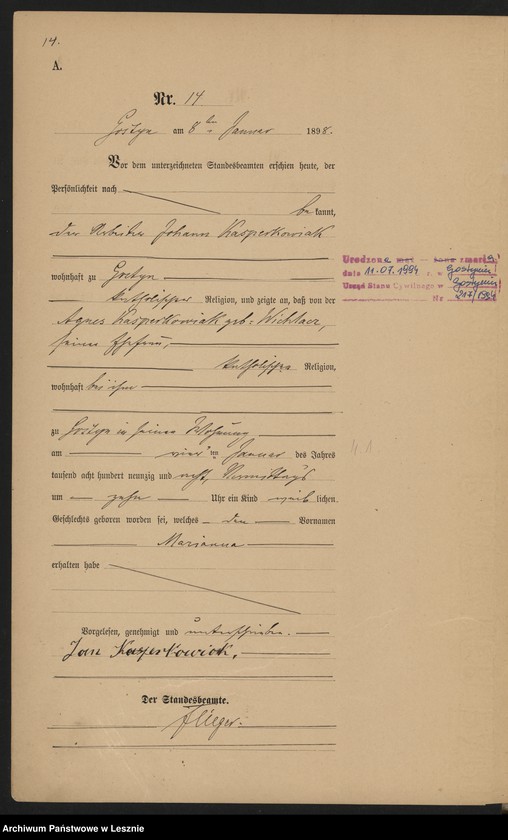 14.
A.
Nr. 14
Gostyn am 8ten Januar 1898.
Vor dem unterzeichneten Standesbeamten erschien heute, der
Persönlichkeit nach
bekannt,
der Arbeiter Johann Kasperkowiak
wohnhaft zu Gostyn
katholischer Religion, und zeigte an, daß von der
Agnes Kasperkowiak geb.
seiner Ehefrau,
katholischer Religion,
wohnhaft bei ihm
zu Gostyn in seiner Wohnung
am vierten Januar des Jahres
tausend acht hundert neunzig und acht, Vormittags
um zehn Uhr ein Kind weiblichen
Geschlechts geboren worden sei, welches den Vornamen
Marianna
erhalten habe
Vorgelesen, genehmigt und unterschrieben.
Jan Kasperkowiak,
Der Standesbeamte.
Urodzona mąż – żona zmarła
dnia 11.07.1994 r. w Gostyniu
Urząd Stanu Cywilnego w Gostyniu
Nr 217/1994
4.1
Archiwum Państwowe w Lesznie